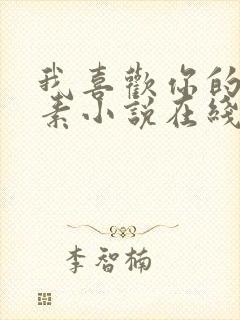 我喜歡你的
素小說在綫
李智楠